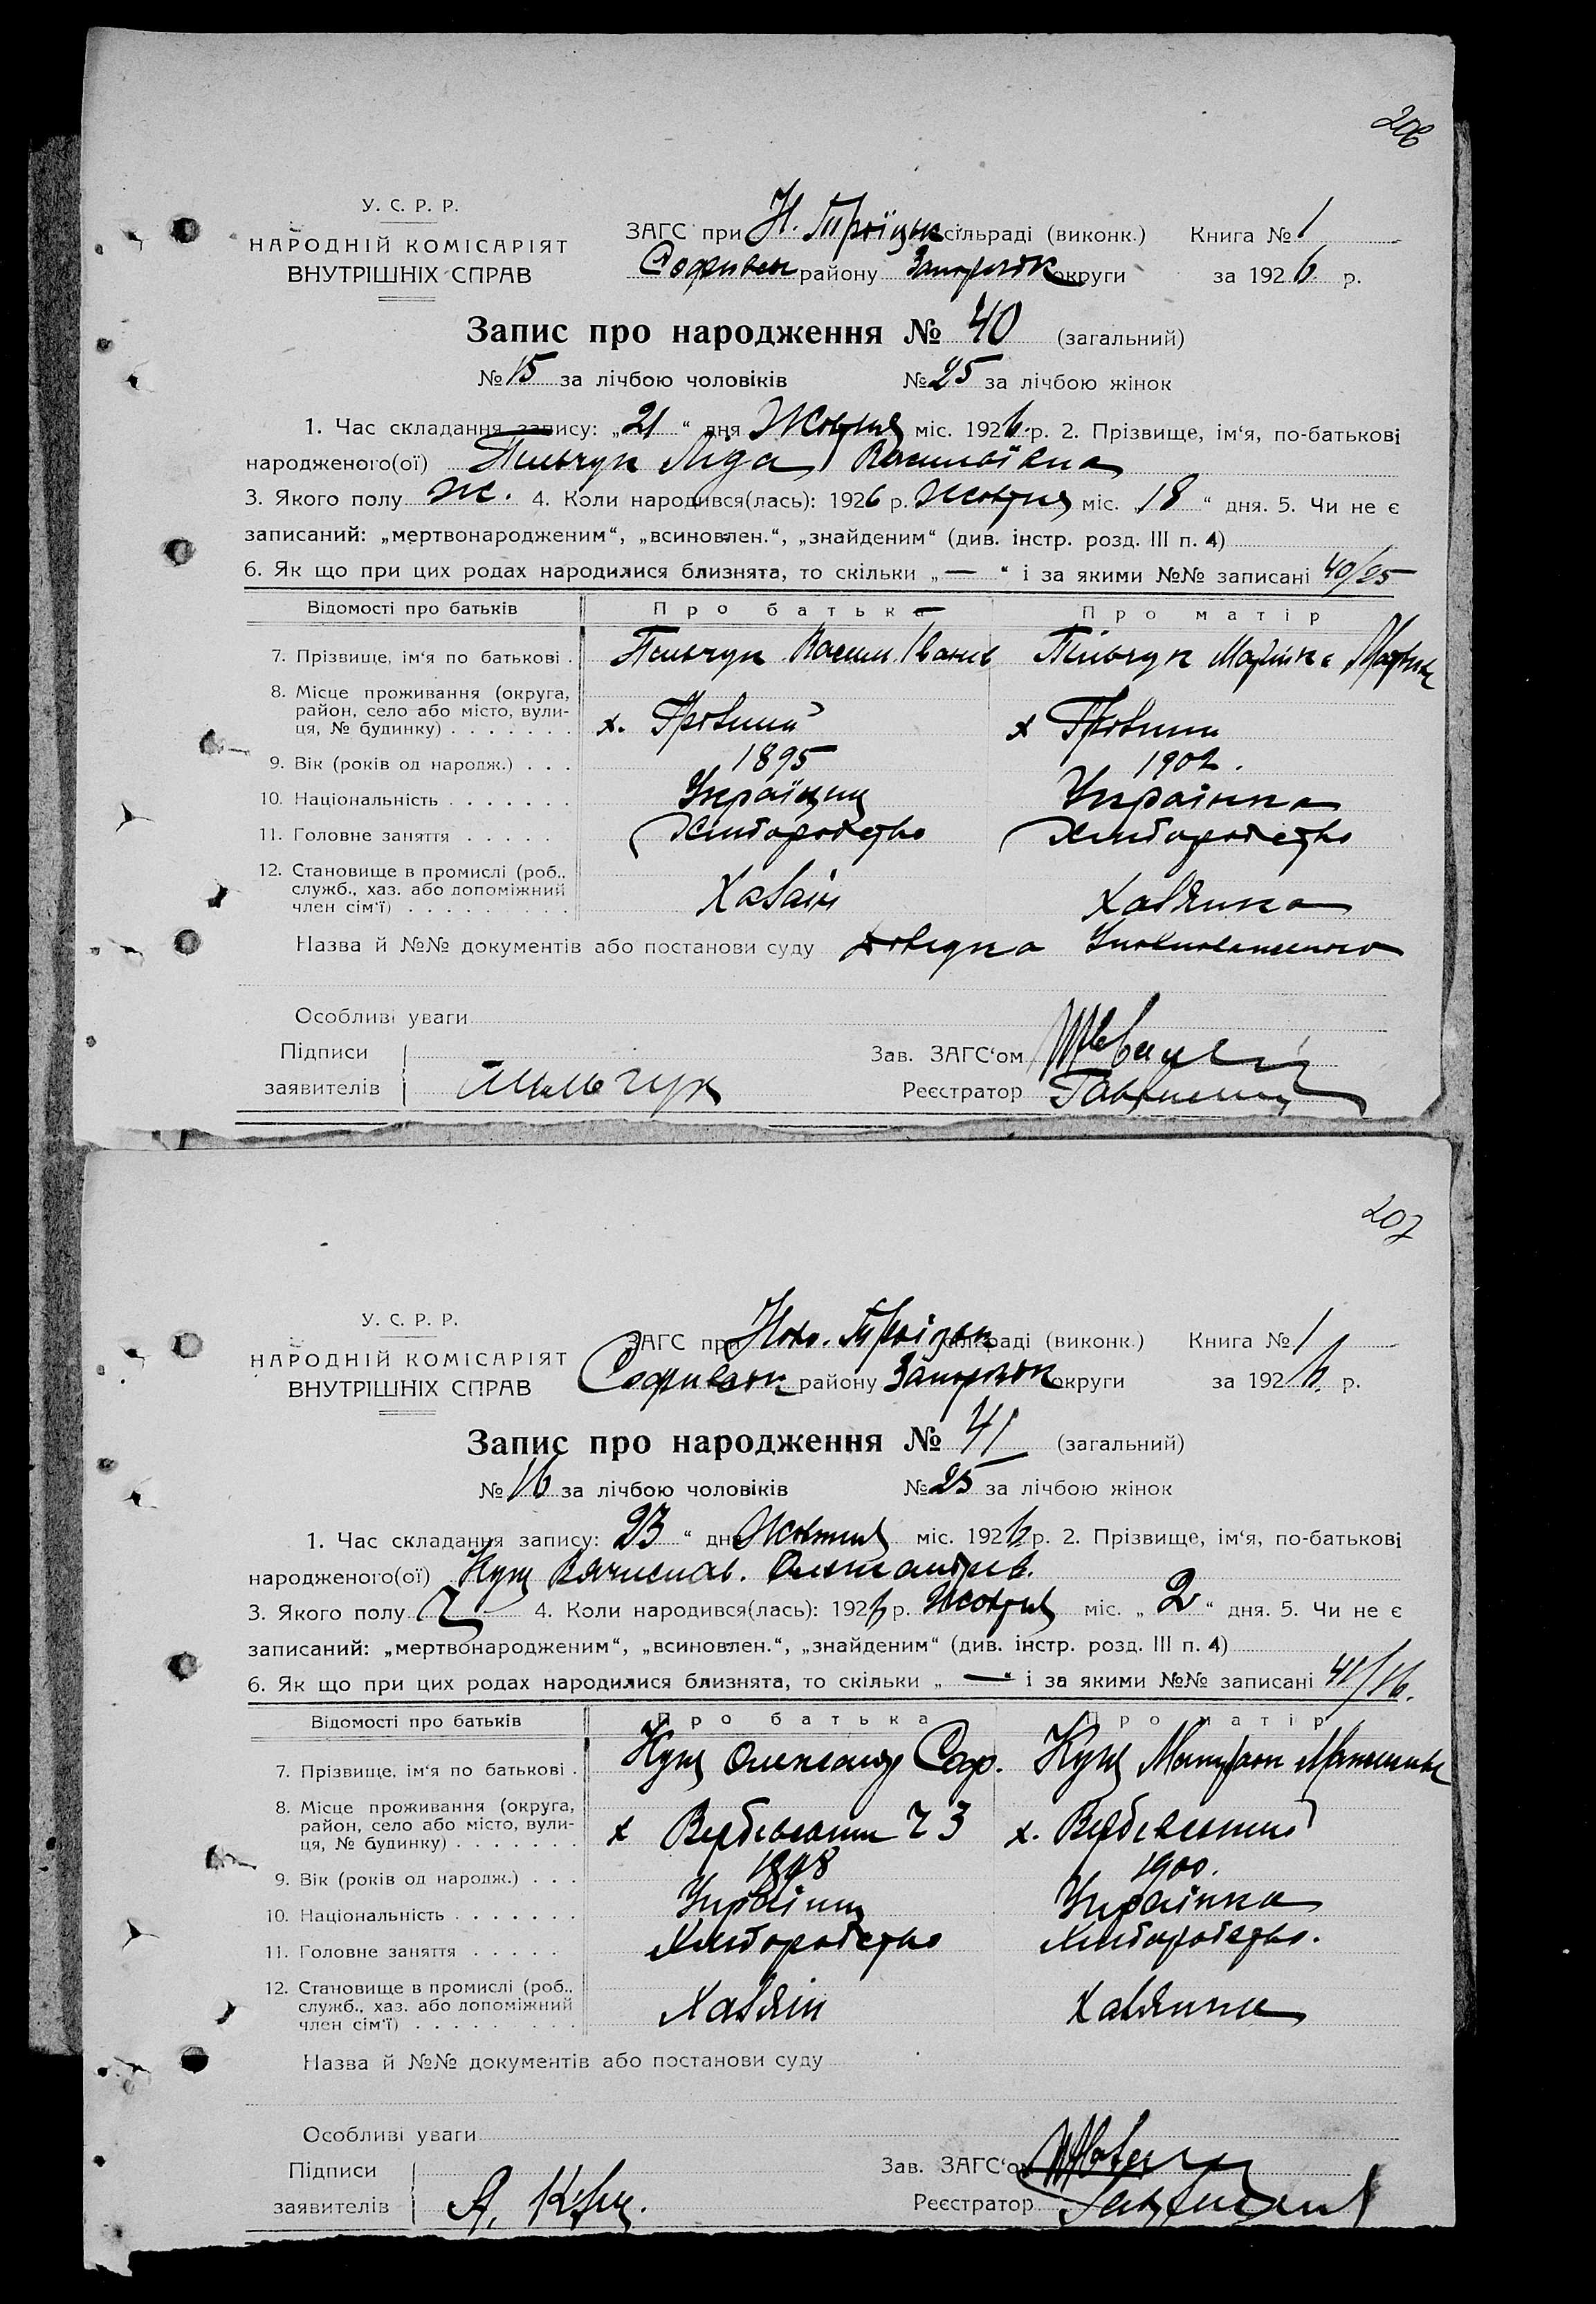 206
У. С. Р. Р.
НАРОДНІЙ КОМІСАРІЯТ
ВНУТРІШНІХ СПРАВ
ЗАГС при Н. Троїцьк сільраді (виконк.) Книга № 1
Софиевск району Запорізьк округи за 1926 р.
Запис про народження № 40 (загальний)
№ 15 за лічбою чоловіків № 25 за лічбою жінок
1. Час складання запису: „21“ дня Жовтня міс. 1926 р. 2. Прізвище, ім'я, по-батькові
народженого(ої) Пильчук Ліда Василівна
3. Якого полу ж. 4. Коли народився(лась): 1926 р. Жовтня міс. „18“ дня. 5. Чи не є
записаний: „мертвонародженим“, „всиновлен.“, „знайденим“ (див. інстр. розд. III п. 4)
6. Як що при цих родах народилися близнята, то скільки „—“ і за якими №№ записані 40/25
Відомості про батьків Про батька Про матір
7. Прізвище, ім'я по батькові . Пильчук Васил. Іванів Пільчук Марійка
8. Місце проживання (округа,
район, село або місто, вули-
ця, № будинку) . . . . . . . х. х
9. Вік (років од народж.) . . . 1895 1902.
10. Національність . . . . . . . Українец Украінка
11. Головне заняття . . . . . Хлиборобство Хлиборобство
12. Становище в промислі (роб..
служб., хаз. або допоміжний
член сім'ї) . . . . . . . . Хазаін Хазяйка
Назва й №№ документів або постанови суду довідка
Особливі уваги
Підписи
заявителів Пильчук
Зав. ЗАГС'ом
Реєстратор
207
У. С. Р. Р.
НАРОДНІЙ КОМІСАРІЯТ
ВНУТРІШНІХ СПРАВ
ЗАГС при Ново. Троіцьк сільраді (виконк.) Книга № 1
Софиевск району Запорізьк округи за 1926 р.
Запис про народження № 41 (загальний)
№ 16 за лічбою чоловіків № 25 за лічбою жінок
1. Час складання запису: „23“ дня Жовтня міс. 1926 р. 2. Прізвище, ім'я, по-батькові
народженого(ої) Кущ Вячислав. Олександрів.
3. Якого полу Ч 4. Коли народився(лась): 1926 р. Жовтня міс. „2“ дня. 5. Чи не є
записаний: „мертвонародженим“, „всиновлен.“, „знайденим“ (див. інстр. розд. III п. 4)
6. Як що при цих родах народилися близнята, то скільки „—“ і за якими №№ записані 41/16.
Відомості про батьків Про батька Про матір
7. Прізвище, ім'я по батькові . Кущ Олександр Соф. Кущ
8. Місце проживання (округа,
район, село або місто, вули-
ця, № будинку) . . . . . . . х х.
9. Вік (років од народж.) . . . 1898 1900.
10. Національність . . . . . . . Украінец Украінка
11. Головне заняття . . . . . Хлиборобство Хлиборобство.
12. Становище в промислі (роб..
служб., хаз. або допоміжний
член сім'ї) . . . . . . . . Хазяін Хазяйка
Назва й №№ документів або постанови суду
Особливі уваги
Підписи
заявителів А. Кущ.
Зав. ЗАГС'ом
Реєстратор